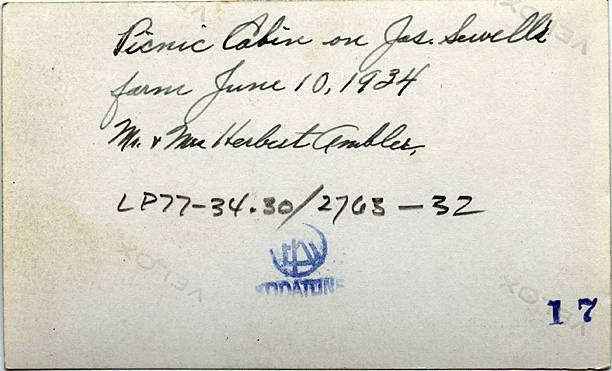 Picnic Cabin on Jas. Sewells
farm June 10, 1934
Mr. & Mrs Herbert Ambler,
LP77-34.30/2763-32
17
VELOX
VELOX
VELOX
VELOX